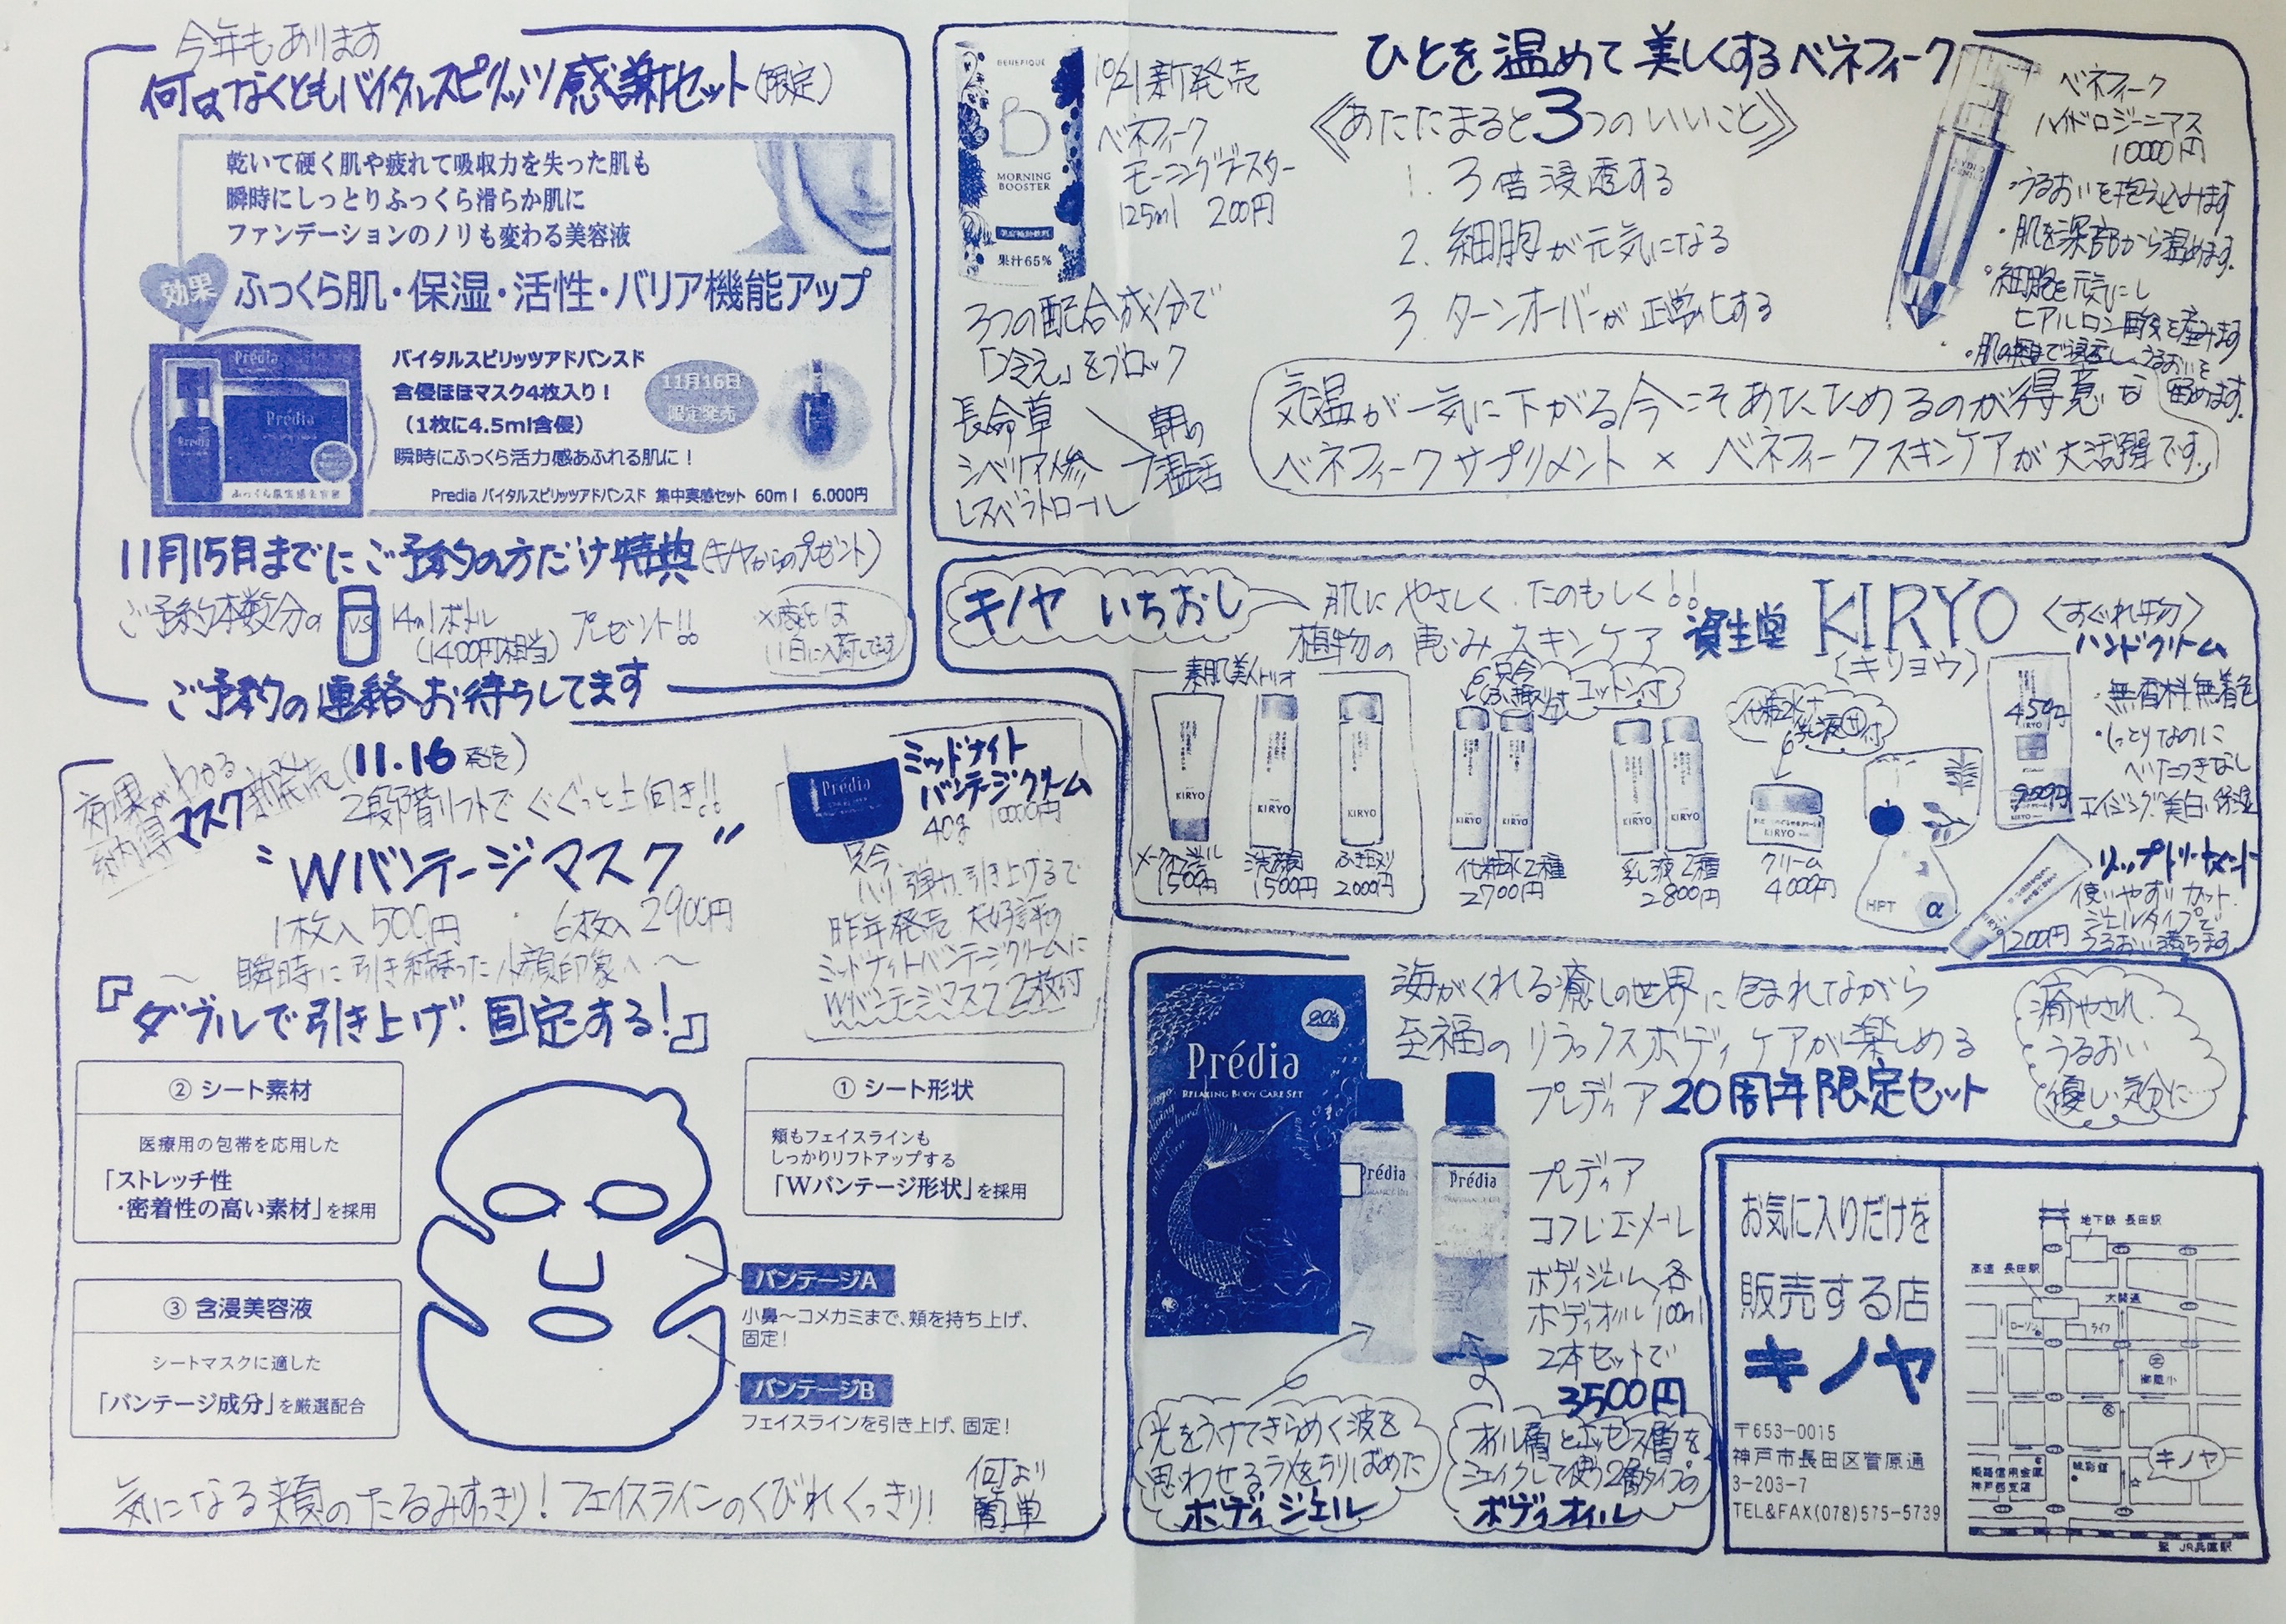 今年もあります
何はなくともバイタルスピリッツ感謝セット(限定)
乾いて硬く肌や疲れて吸収力を失った肌も
瞬時にしっとりふっくら滑らか肌に
ファンデーションのノリも変わる美容液
効果
ふっくら肌・保湿・活性・バリア機能アップ
Prédia
バイタルスピリッツアドバンスド
含侵ほほマスク4枚入り!
(1枚に4.5ml含侵)
11月16日
限定発売
瞬時にふっくら活力感あふれる肌に!
Predia バイタルスピリッツアドバンスド 集中実感セット 60ml 6.000円
11月15日までにご予約の方だけ特典(キノヤからのプレゼント)
ご予約本数分の VS 14mlボトル
(1400円相当) プレゼント!!
ご予約の連絡お待ちしてます
効果がわかる
納得マスク新発売(11.16発売)
2段階リフトでぐぐっと上向き!!
“Wバンテージマスク”
1枚入500円 ・ 6枚入2900円
〜 瞬時に引き締まった小顔印象へ 〜
『ダブルで引き上げ・固定する!』
Prédia
ミッドナイト
バンテージクリーム
40g 10000円
只今
ハリ 弾力、引き上げるで
昨年発売 大好評の
ミッドナイトバンテージクリームに
Wバンテージマスク2枚付
② シート素材
医療用の包帯を応用した
「ストレッチ性
・密着性の高い素材」を採用
① シート形状
頬もフェイスラインも
しっかりリフトアップする
「Wバンテージ形状」を採用
③ 含浸美容液
シートマスクに適した
「バンテージ成分」を厳選配合
バンテージA
小鼻〜コメカミまで、頬を持ち上げ、
固定!
バンテージB
フェイスラインを引き上げ、固定!
気になる頬のたるみすっきり!フェイスラインのくびれくっきり!
何より
簡単
BENEFIQUE
B
MORNING
BOOSTER
果汁65%
10/21新発売
ベネフィーク
モーニングブースター
125ml 200円
3つの配合成分で
「冷え」をブロック
長命草
シベリア人参
レスベラトロール
朝の
温活
ひとを温めて美しくするベネフィーク
《あたたまると3つのいいこと》
1. 3倍浸透する
2. 細胞が元気になる
3. ターンオーバーが正常化する
ベネフィーク
ハイドロジーニアス
10000円
・うるおいを抱え込みます
・肌を深部から温めます.
・細胞を元気にし
ヒアルロン酸を産みます
気温が一気に下がる今こそあたためるのが得意な
ベネフィークサプリメント × ベネフィークスキンケアが大活躍です.
キノヤ いちおし
肌にやさしく.たのもしく!!
植物の恵みスキンケア
資生堂 KIRYO
(キリョウ)
〈すぐれ物〉
ハンドクリーム
・無香料 無着色
・しっとりなのに
べたつきなし
エイジング・美白・保湿
450円
素肌美人トリオ
只今
コットン付
KIRYO
KIRYO
KIRYO
KIRYO
KIRYO
KIRYO
1500円
洗顔
1500円
2000円
化粧水2種
2700円
乳液2種
2800円
クリーム
4000円
HPT
α
リップトリートメント
使いやすいカット.
ジェルタイプで
うるおい満ちます
1200円
海がくれる癒しの世界に包まれてながら
至福のリラックスボディケアが楽しめる
プレディア20周年限定セット
癒やされ.
うるおい
優しい気分に…
20th
Prédia
RELAXING BODY CARE SET
Prédia
Prédia
プレディア
コフレエメール
ボディジェル
ボディオイル
各
100ml
2本セットで
3500円
光をうけてきらめく波を
思わせるラメをちりばめた
ボディジェル
オイル層とエッセンス層を
シェイクして使う2層タイプの
ボディオイル
お気に入りだけを
販売する店
キノヤ
〒653-0015
神戸市長田区菅原通
3-203-7
TEL&FAX(078)575-5739
地下鉄 長田駅
高速 長田駅
大開通
ローソン
ライフ
御蔵小
キノヤ
姫路信用金庫
神戸西支店
至 JR兵庫駅